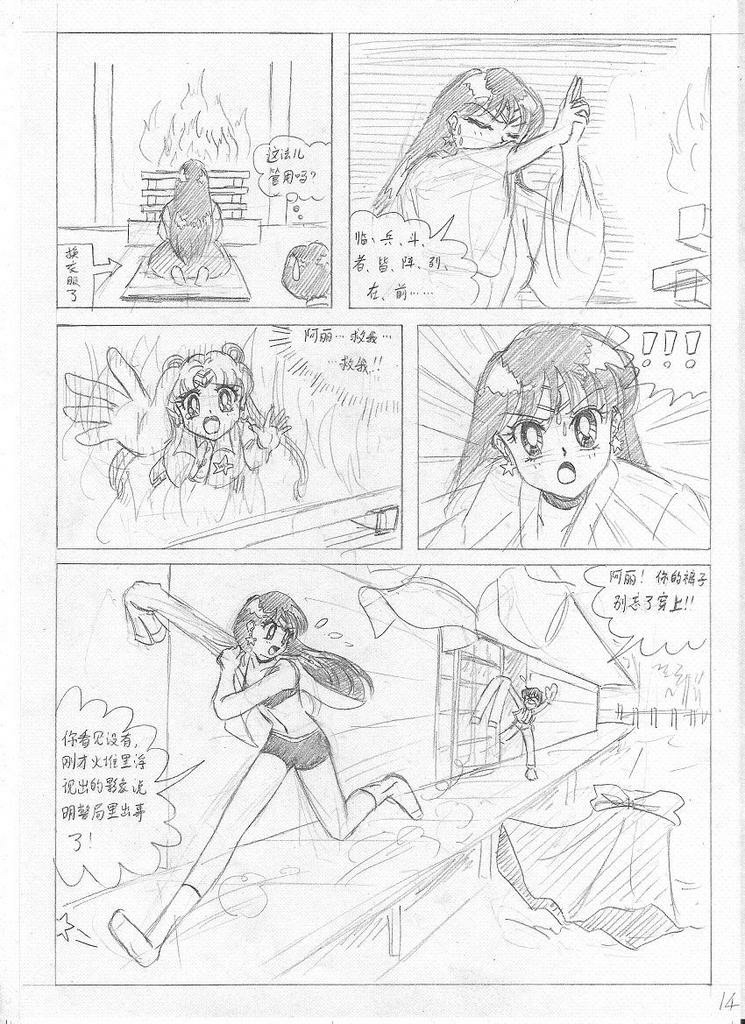 这法儿
管用吗？
换
衣
服
了
临、兵、斗、
者、皆、阵、列、
在、前……
阿丽…救我…
救我!!
!!!
阿丽！你的裤子
别忘了穿上!!
你看见没有，
刚才火堆里浮
现出的影象说
明警局里出事
了！
14